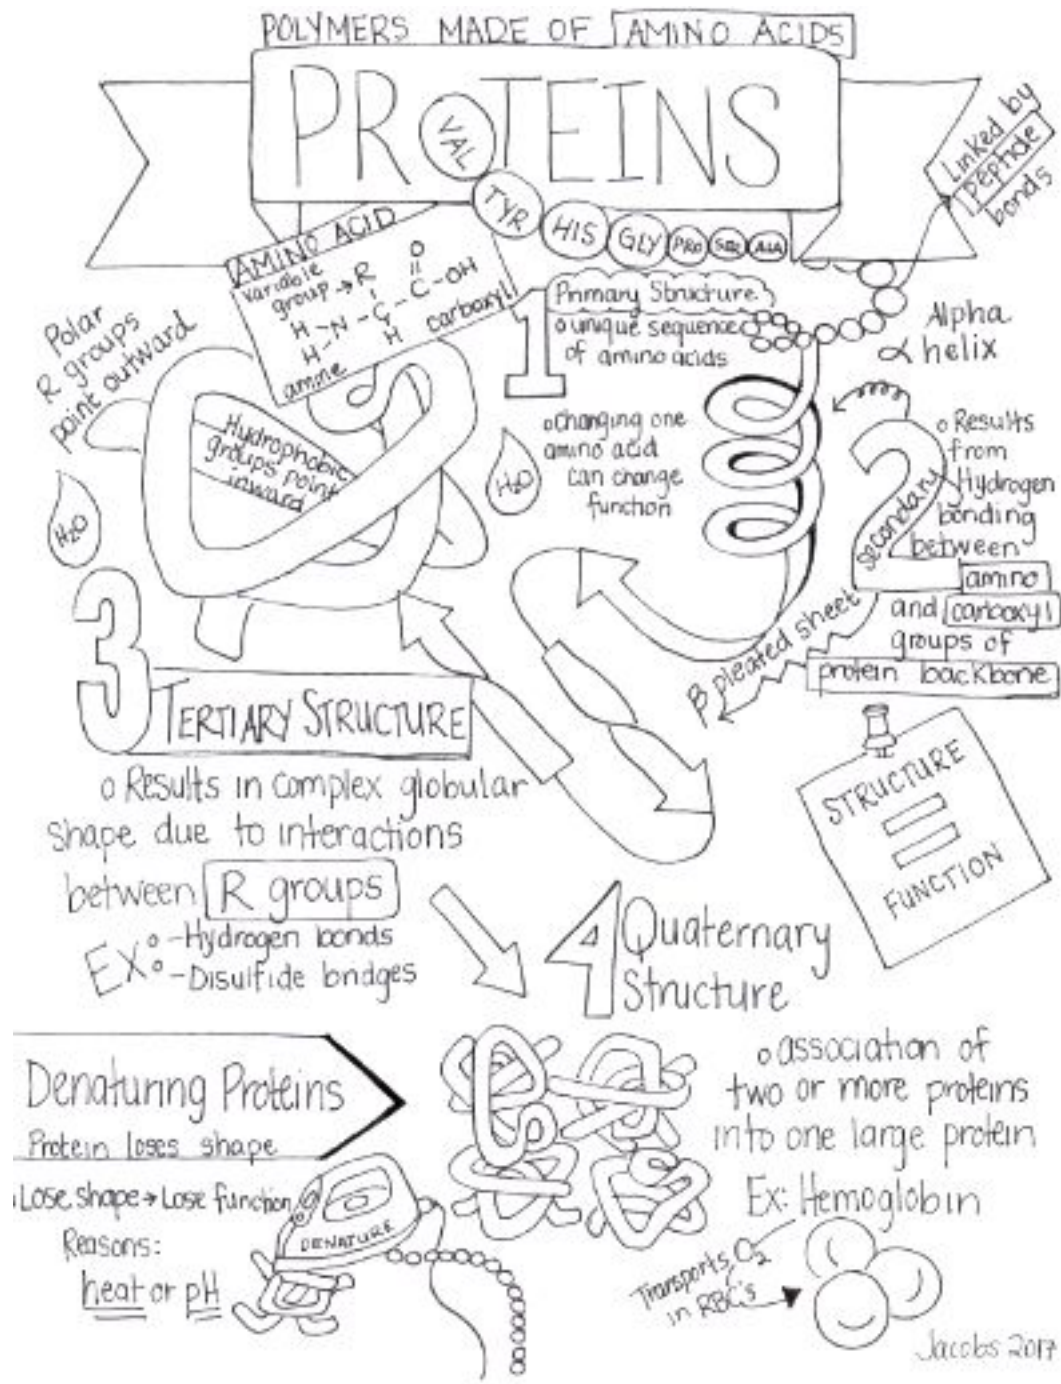 POLYMERS MADE OF AMINO ACIDS
PROTEINS
VAL
TYR
HIS
GLY
PRO
SER
ALA
Linked by
peptide
bonds
AMINO ACID
variable
group → R
O
H - N - C - C - OH
H
H
carboxyl
amine
1
Primary Structure
unique sequence
of amino acids
changing one
amino acid
can change
function
H2O
Alpha
α helix
2
secondary
Results
from
Hydrogen
bonding
between
amino
and carboxyl
groups of
protein backbone
β pleated sheet
Polar
R groups
point outward
Hydrophobic
groups point
inward
H2O
3
TERTIARY STRUCTURE
Results in complex globular
shape due to interactions
between R groups
EX: -Hydrogen bonds
-Disulfide bridges
STRUCTURE
=
FUNCTION
4
Quaternary
Structure
association of
two or more proteins
into one large protein
Ex: Hemoglobin
Transports O2
in RBC's
Denaturing Proteins
Protein loses shape
Lose shape → Lose function
Reasons:
heat or pH
DENATURE
Jacobs 2017